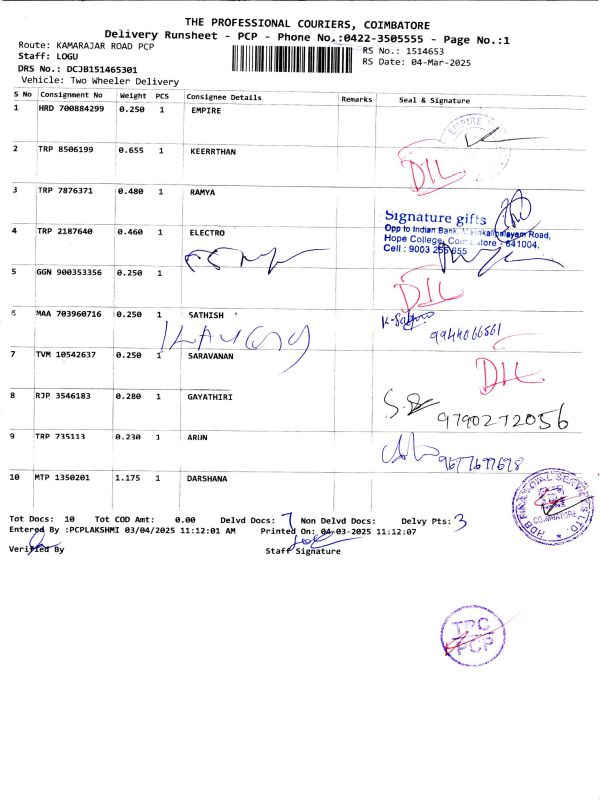 THE PROFESSIONAL COURIERS, COIMBATORE
Delivery Runsheet - PCP - Phone No.:0422-3505555 - Page No.:1
Route: KAMARAJAR ROAD PCP
RS No.: 1514653
Staff: LOGU
RS Date: 04-Mar-2025
DRS No.: DCJB151465301
Vehicle: Two Wheeler Delivery
S No Consignment No Weight PCS Consignee Details Remarks Seal & Signature
1 HRD 700884299 0.250 1 EMPIRE
EMPIRE
2 TRP 8506199 0.655 1 KEERRTHAN
DIL
3 TRP 7876371 0.480 1 RAMYA
Signature gifts
4 TRP 2187640 0.460 1 ELECTRO
Opp to Indian Bank, Road,
Hope College, Coimbatore - 641004.
Cell : 9003 255 655
5 GGN 900353356 0.250 1
DIL
6 MAA 703960716 0.250 1 SATHISH
9944066561
7 TVM 10542637 0.250 1 SARAVANAN
DIL
8 RJP 3546183 0.280 1 GAYATHIRI
9790272056
9 TRP 735113 0.230 1 ARUN
9677697698
10 MTP 1350201 1.175 1 DARSHANA
HDB FINANCIAL SERVICES LTD.
COIMBATORE
Tot Docs: 10 Tot COD Amt: 0.00 Delvd Docs: 7 Non Delvd Docs: Delvy Pts: 3
Entered By :PCPLAKSHMI 03/04/2025 11:12:01 AM Printed On: 04-03-2025 11:12:07
Verified By Staff Signature
TPC
PCP